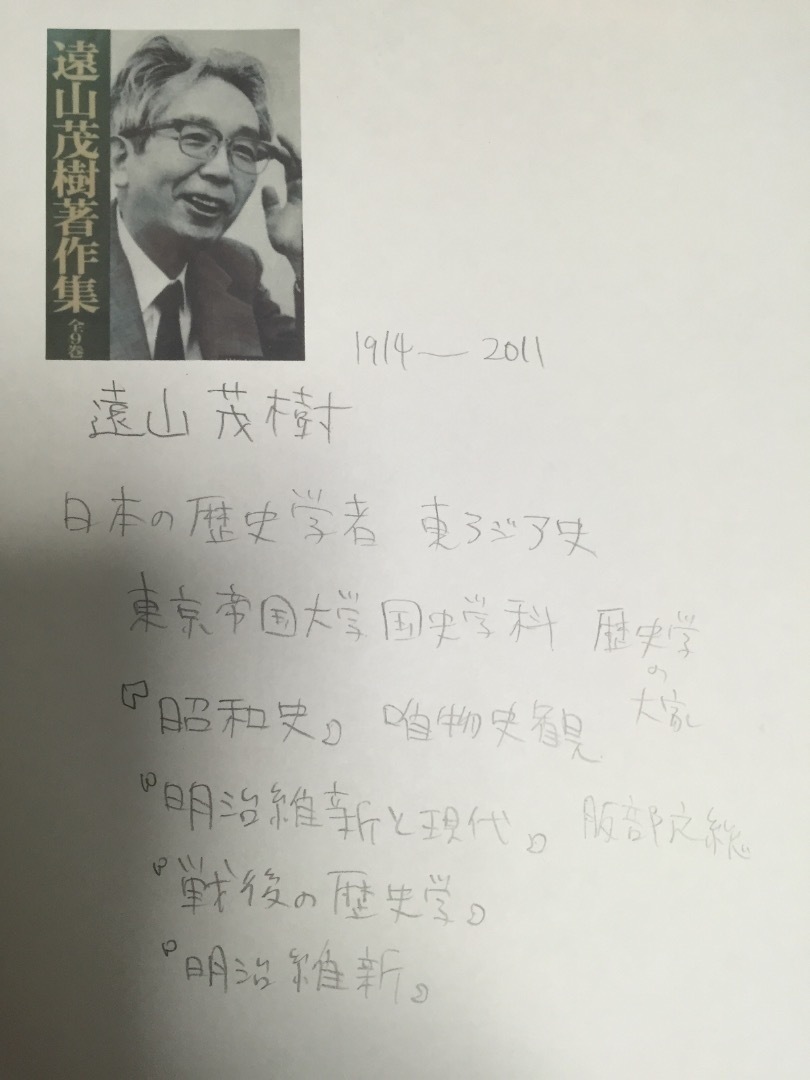 遠山茂樹著作集 全9巻
1914—2011
遠山茂樹
日本の歴史学者 東アジア史
東京帝国大学 国史学科 歴史学の大家
『昭和史』 唯物史観
『明治維新と現代』 服部之総
『戦後の歴史学』
『明治維新』